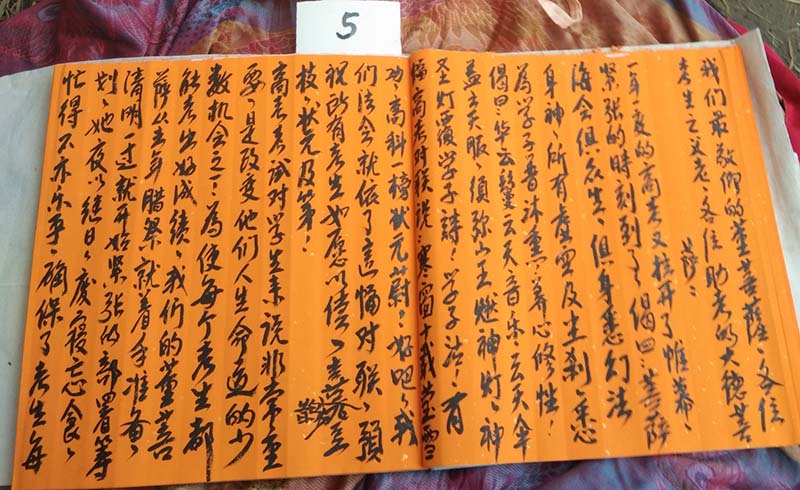 5
我们最敬仰的董菩萨、各位
考生之父老、各位助考的大德菩
萨：
一年一度的高考又拉开了帷幕、
紧张的时刻到了、偈曰：菩萨
海会俱众生、俱身悉幻法
身神、所有虚空及尘刹、悉
為学子普沐熏、养心修性！
偈曰：华云鬘云天音乐云天伞
盖云天服、须弥山王燃神灯、神
圣灯覆学子诗！学子沾、有
幅高考对联说：寒窗十载萤雪
功、高科一榜状元蔚、好吧、我
们法会就依了这幅对联、预
祝所有考生如愿以偿、
技、状元及第！
高考考试对学生来说非常重
要、是改变他们人生命运的少
数机会之一、为使每个考生都
能考出好成绩、我们的董菩
萨从去年腊祭就着手准备、
清明一过就开始紧张的部署筹
划、她夜以继日、废寝忘食、
忙得不亦乐乎、确保了考生每